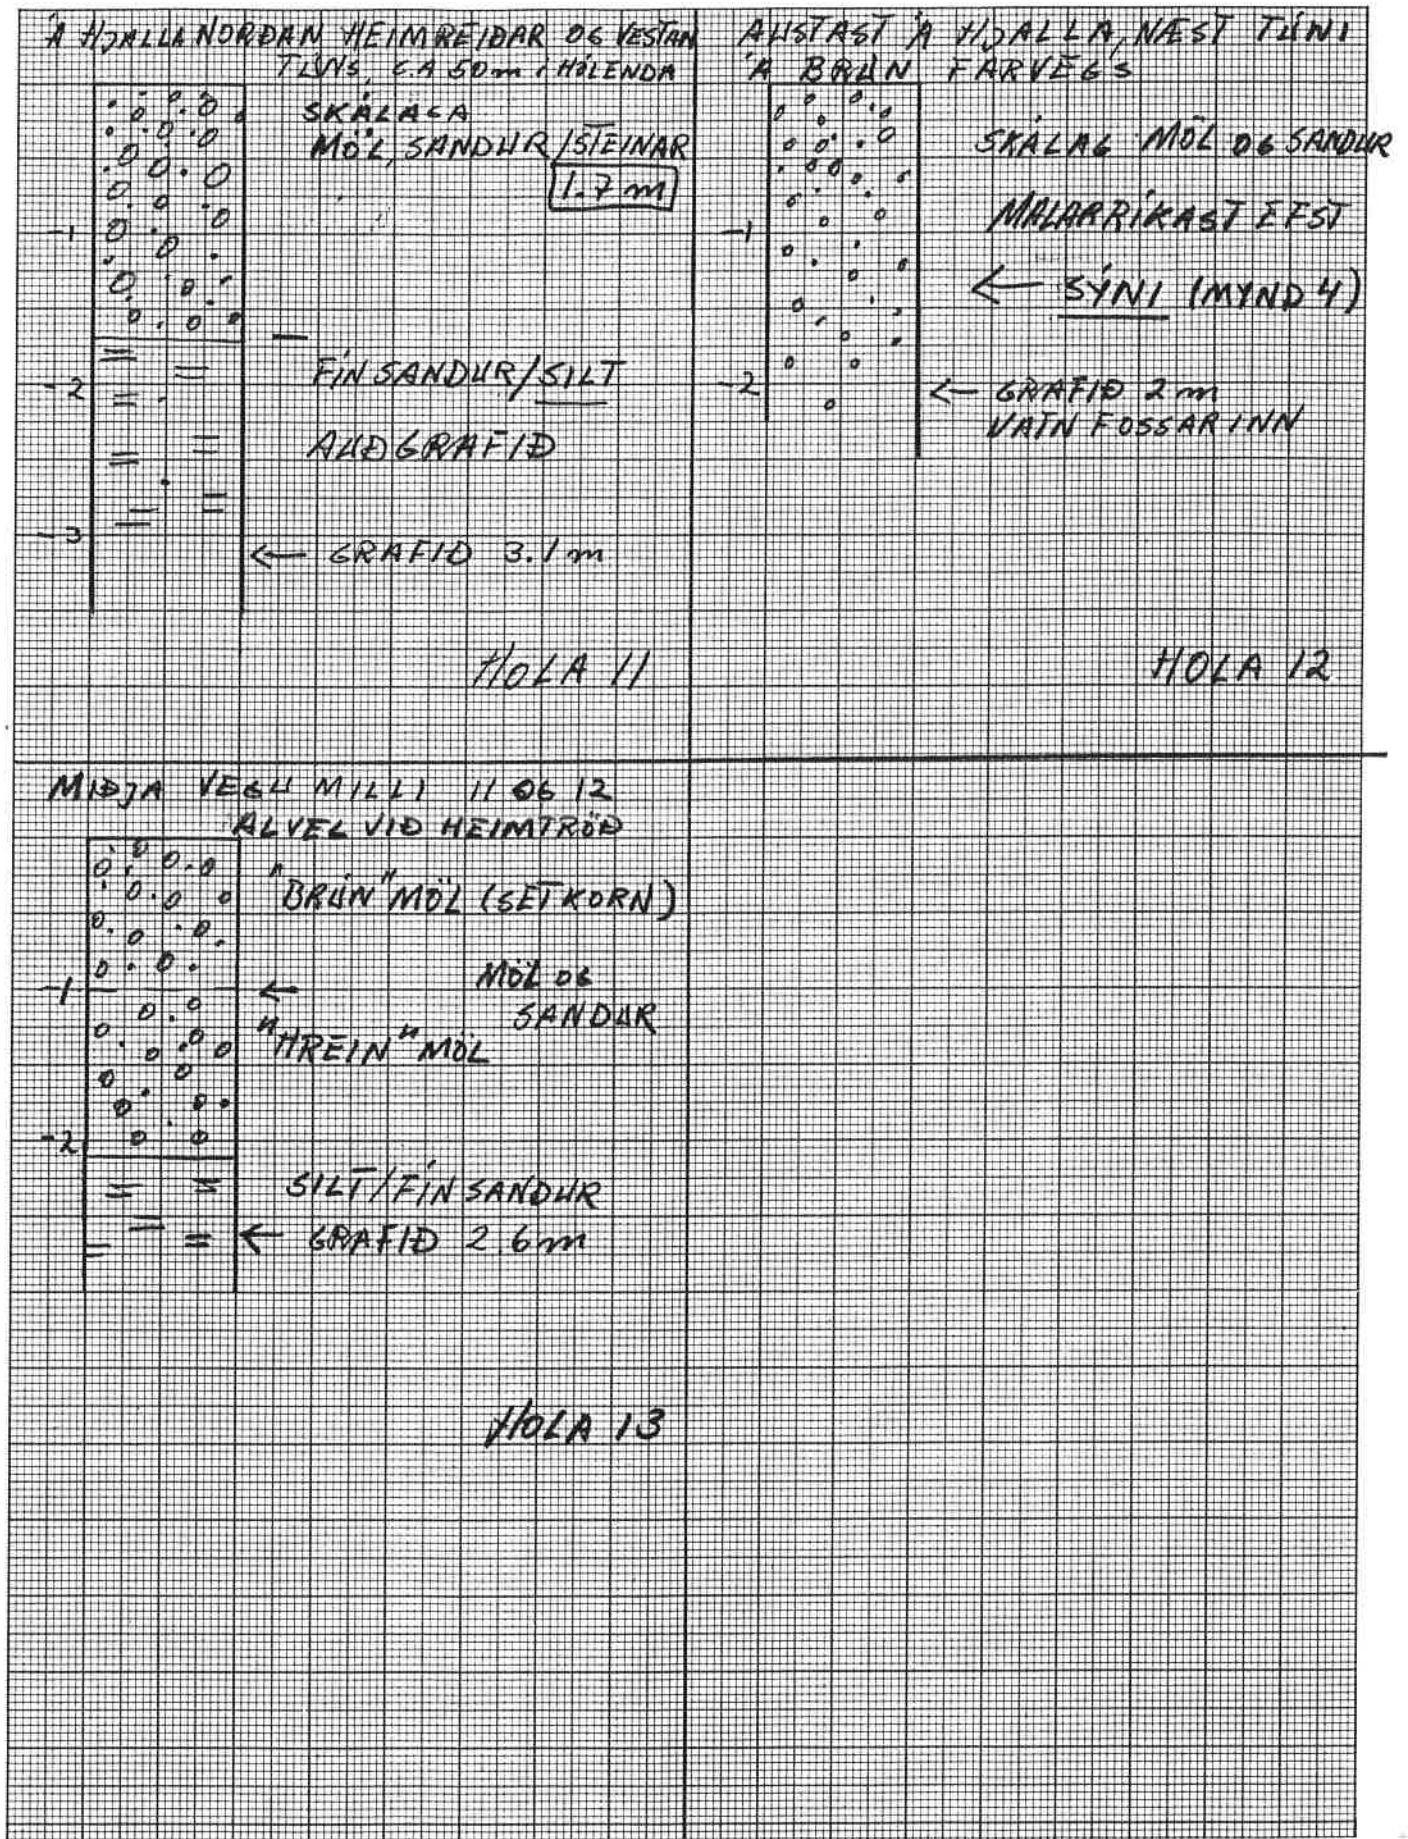 Á HJALLA NORÐAN HEIMREIÐAR OG VESTAN
TÚNS, C.A 50m Í HÓLENDA
SKÁLAGA
MÖL, SANDUR/STEINAR
1.7 m
-1
-2
FÍNSANDUR/SILT
AUÐGRAFIÐ
-3
← GRAFIÐ 3.1 m
HOLA 11
AUSTAST Á HJALLA, NÆST TÚNI
Á BRÚN FARVEGS
SKÁLAG MÖL OG SANDUR
MALARRÍKAST EFST
-1
← SÝNI (MYND 4)
-2
← GRAFIÐ 2 m
VATN FOSSAR INN
HOLA 12
MIÐJA VEGU MILLI 11 OG 12
ALVEL VIÐ HEIMTRÖÐ
"BRÚN" MÖL (SETKORN)
-1
←
MÖL OG
SANDUR
"HREIN" MÖL
-2
SILT/FÍNSANDUR
← GRAFIÐ 2.6m
HOLA 13